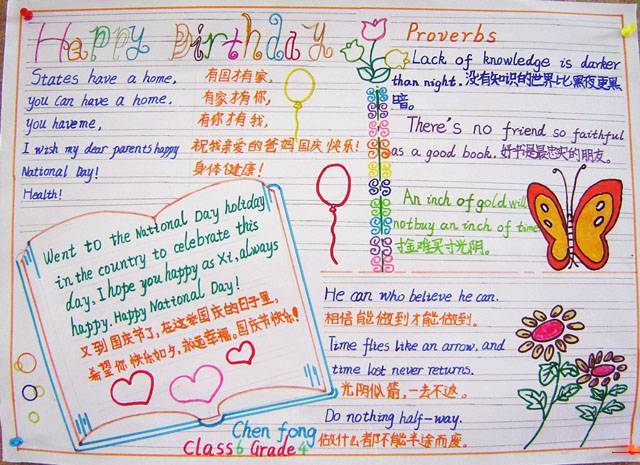 Happy Birthday
States have a home, 有国才有家,
you can have a home. 有家才有你,
You have me, 有你才有我,
I wish my dear parents happy 祝我亲爱的爸妈国庆快乐!
National Day! 身体健康!
Health!
Went to the National Day holiday
in the country to celebrate this
day, I hope you happy as Xi, always
happy. Happy National Day!
又到国庆节了,在这举国庆的日子里,
希望你快乐如夕,永远幸福。国庆节快乐!
Chen fong
Class6 Grade4
Proverbs
Lack of knowledge is darker
than night. 没有知识的世界比黑夜更黑
暗。
There's no friend so faithful
as a good book. 好书是最忠实的朋友。
An inch of gold will
not buy an inch of time
寸金难买寸光阴。
He can who believe he can.
相信能做到才能做到。
Time flies like an arrow, and
time lost never returns.
光阴似箭,一去不返。
Do nothing half-way.
做什么都不能半途而废。